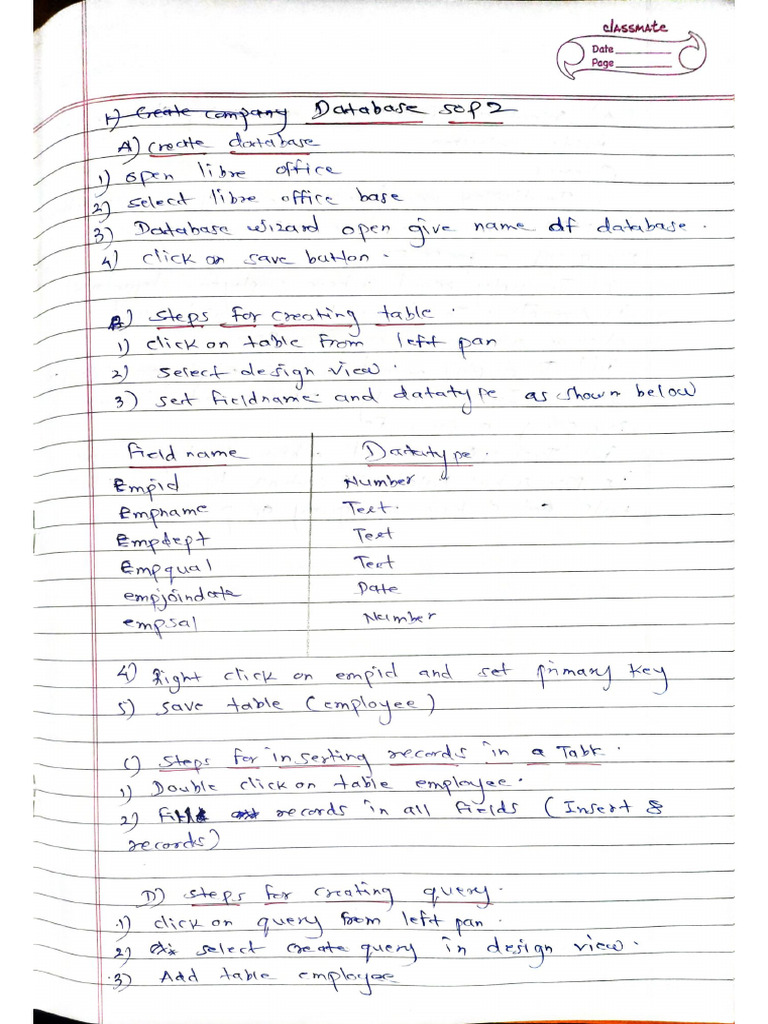 classmate
Date
Page
1) Create company Database SOP 2
A) create database
1) open libre office
2) select libre office base
3) Database wizard open give name of database.
4) click on save button.
B) steps for creating table.
1) click on table from left pan
2) select design view.
3) set fieldname and datatype as shown below
Field name Datatype.
Empid Number
Empname Text.
Empdept Text
Empqual Text
empjoindate Date
empsal Number
4) Right click on empid and set primary key
5) save table (employee)
C) Steps for inserting records in a Table.
1) Double click on table employee.
2) Fill records in all fields (Insert 8
records)
D) steps for creating query.
1) click on query from left pan.
2) select create query in design view.
3) Add table employee